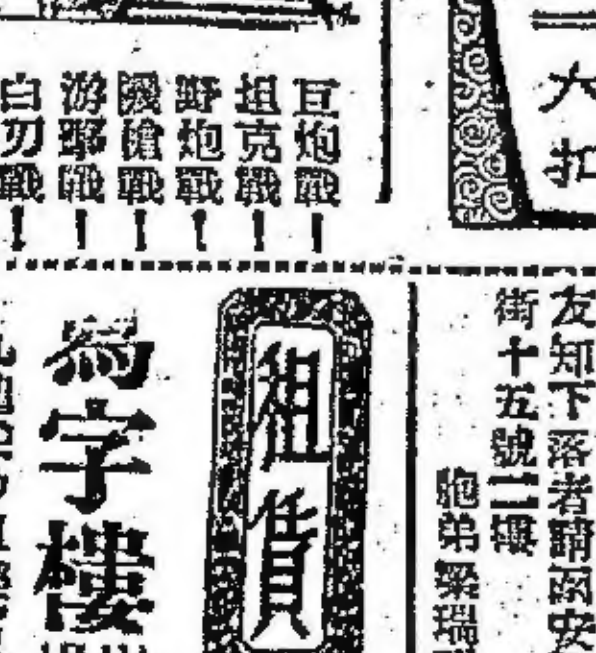 六扣
巨炮戰！
坦克戰！
野炮戰！
機槍戰！
游擊戰！
白刃戰！
友知下落者請函安
街十五號二樓
胞弟梁瑞
租賃
寫字樓